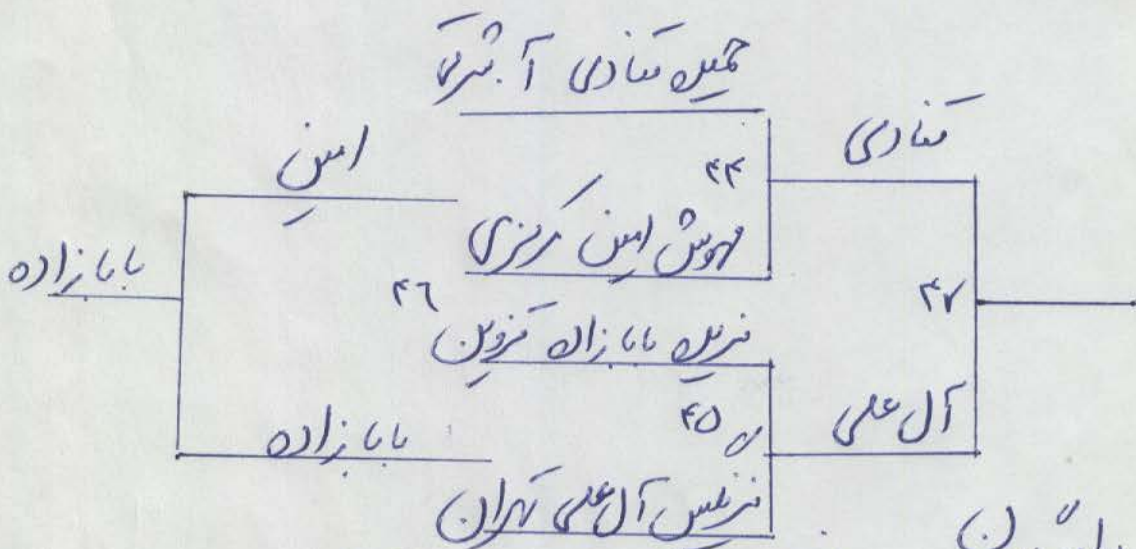 جمیله قنادی آ.شرقی
قنادی
امین
۴۴
مهوش امین مرکزی
بابازاده
۴۶
۴۷
فریده بابازاده قزوین
آل علی
۴۵
بابازاده
نرگس آل علی تهران